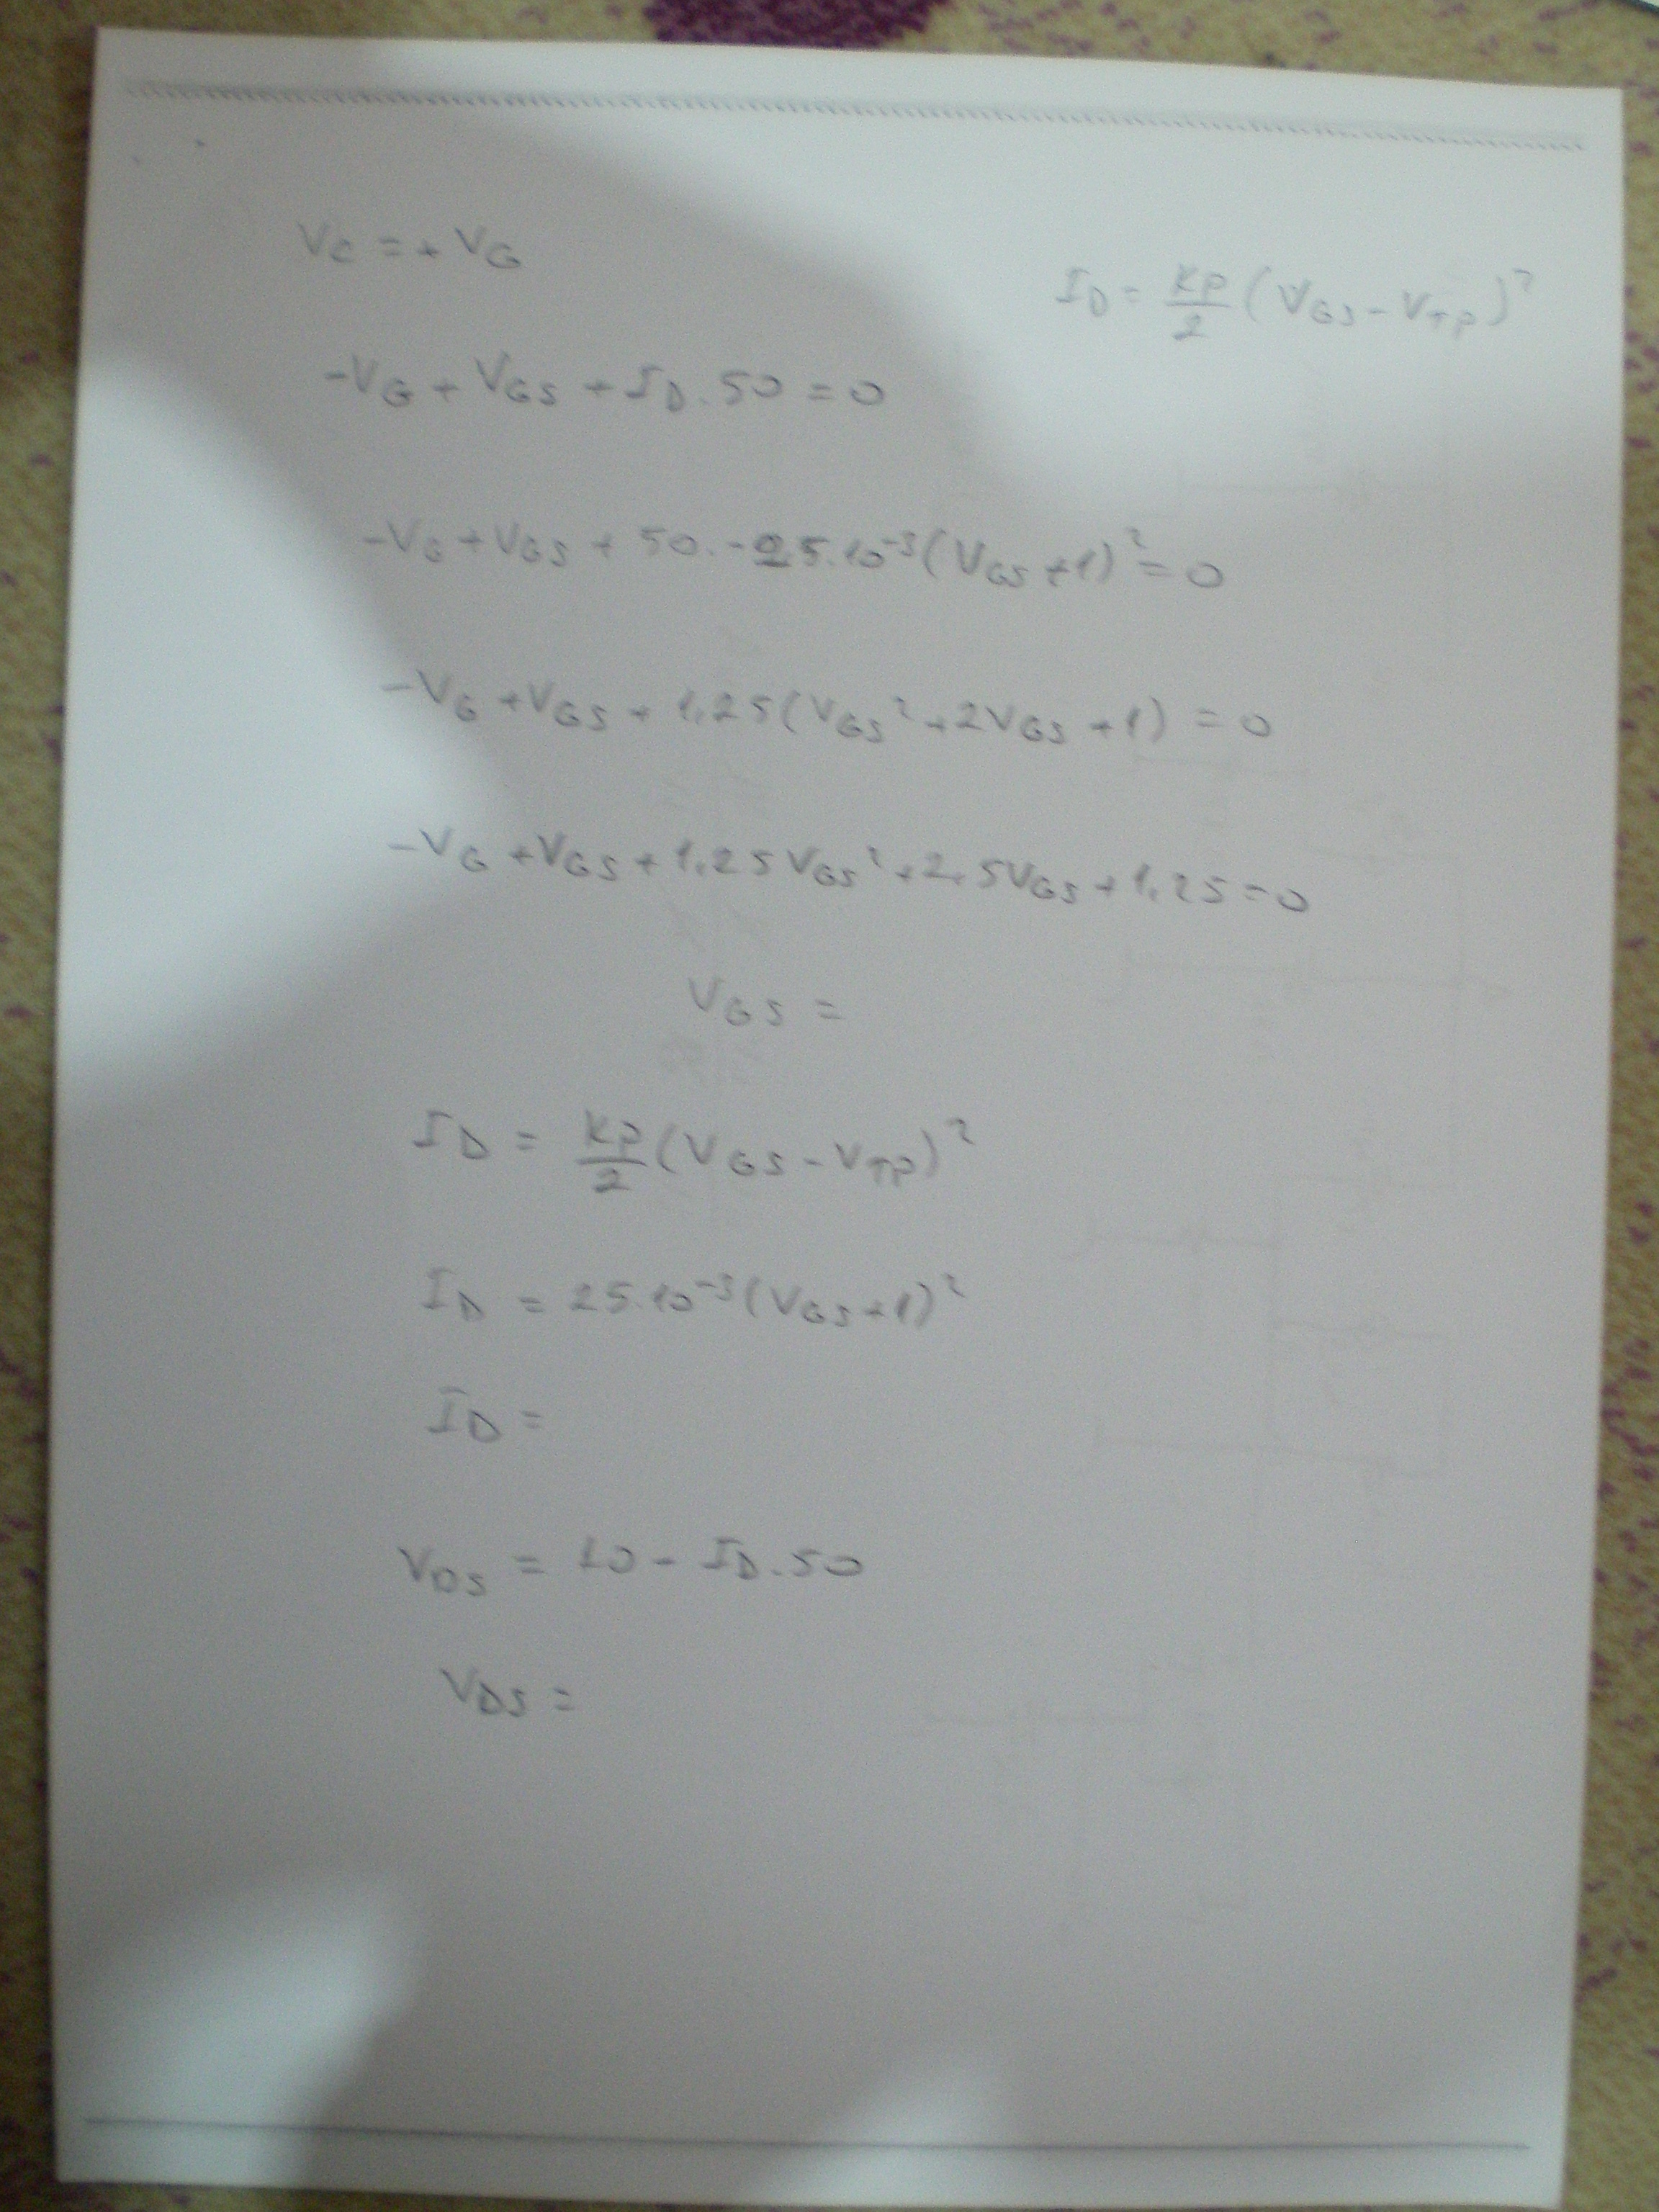 Vc = + VG
ID = Kp/2 (VGS - VTP)²
-VG + VGS + ID . 50 = 0
-VG + VGS + 50 . - 25.10⁻³ (VGS + 1)² = 0
-VG + VGS + 1.25 (VGS² + 2VGS + 1) = 0
-VG + VGS + 1.25 VGS² + 2.5VGS + 1.25 = 0
VGS =
ID = Kp/2 (VGS - VTP)²
ID = 25.10⁻³ (VGS + 1)²
ID =
VDS = 10 - ID . 50
VDS =